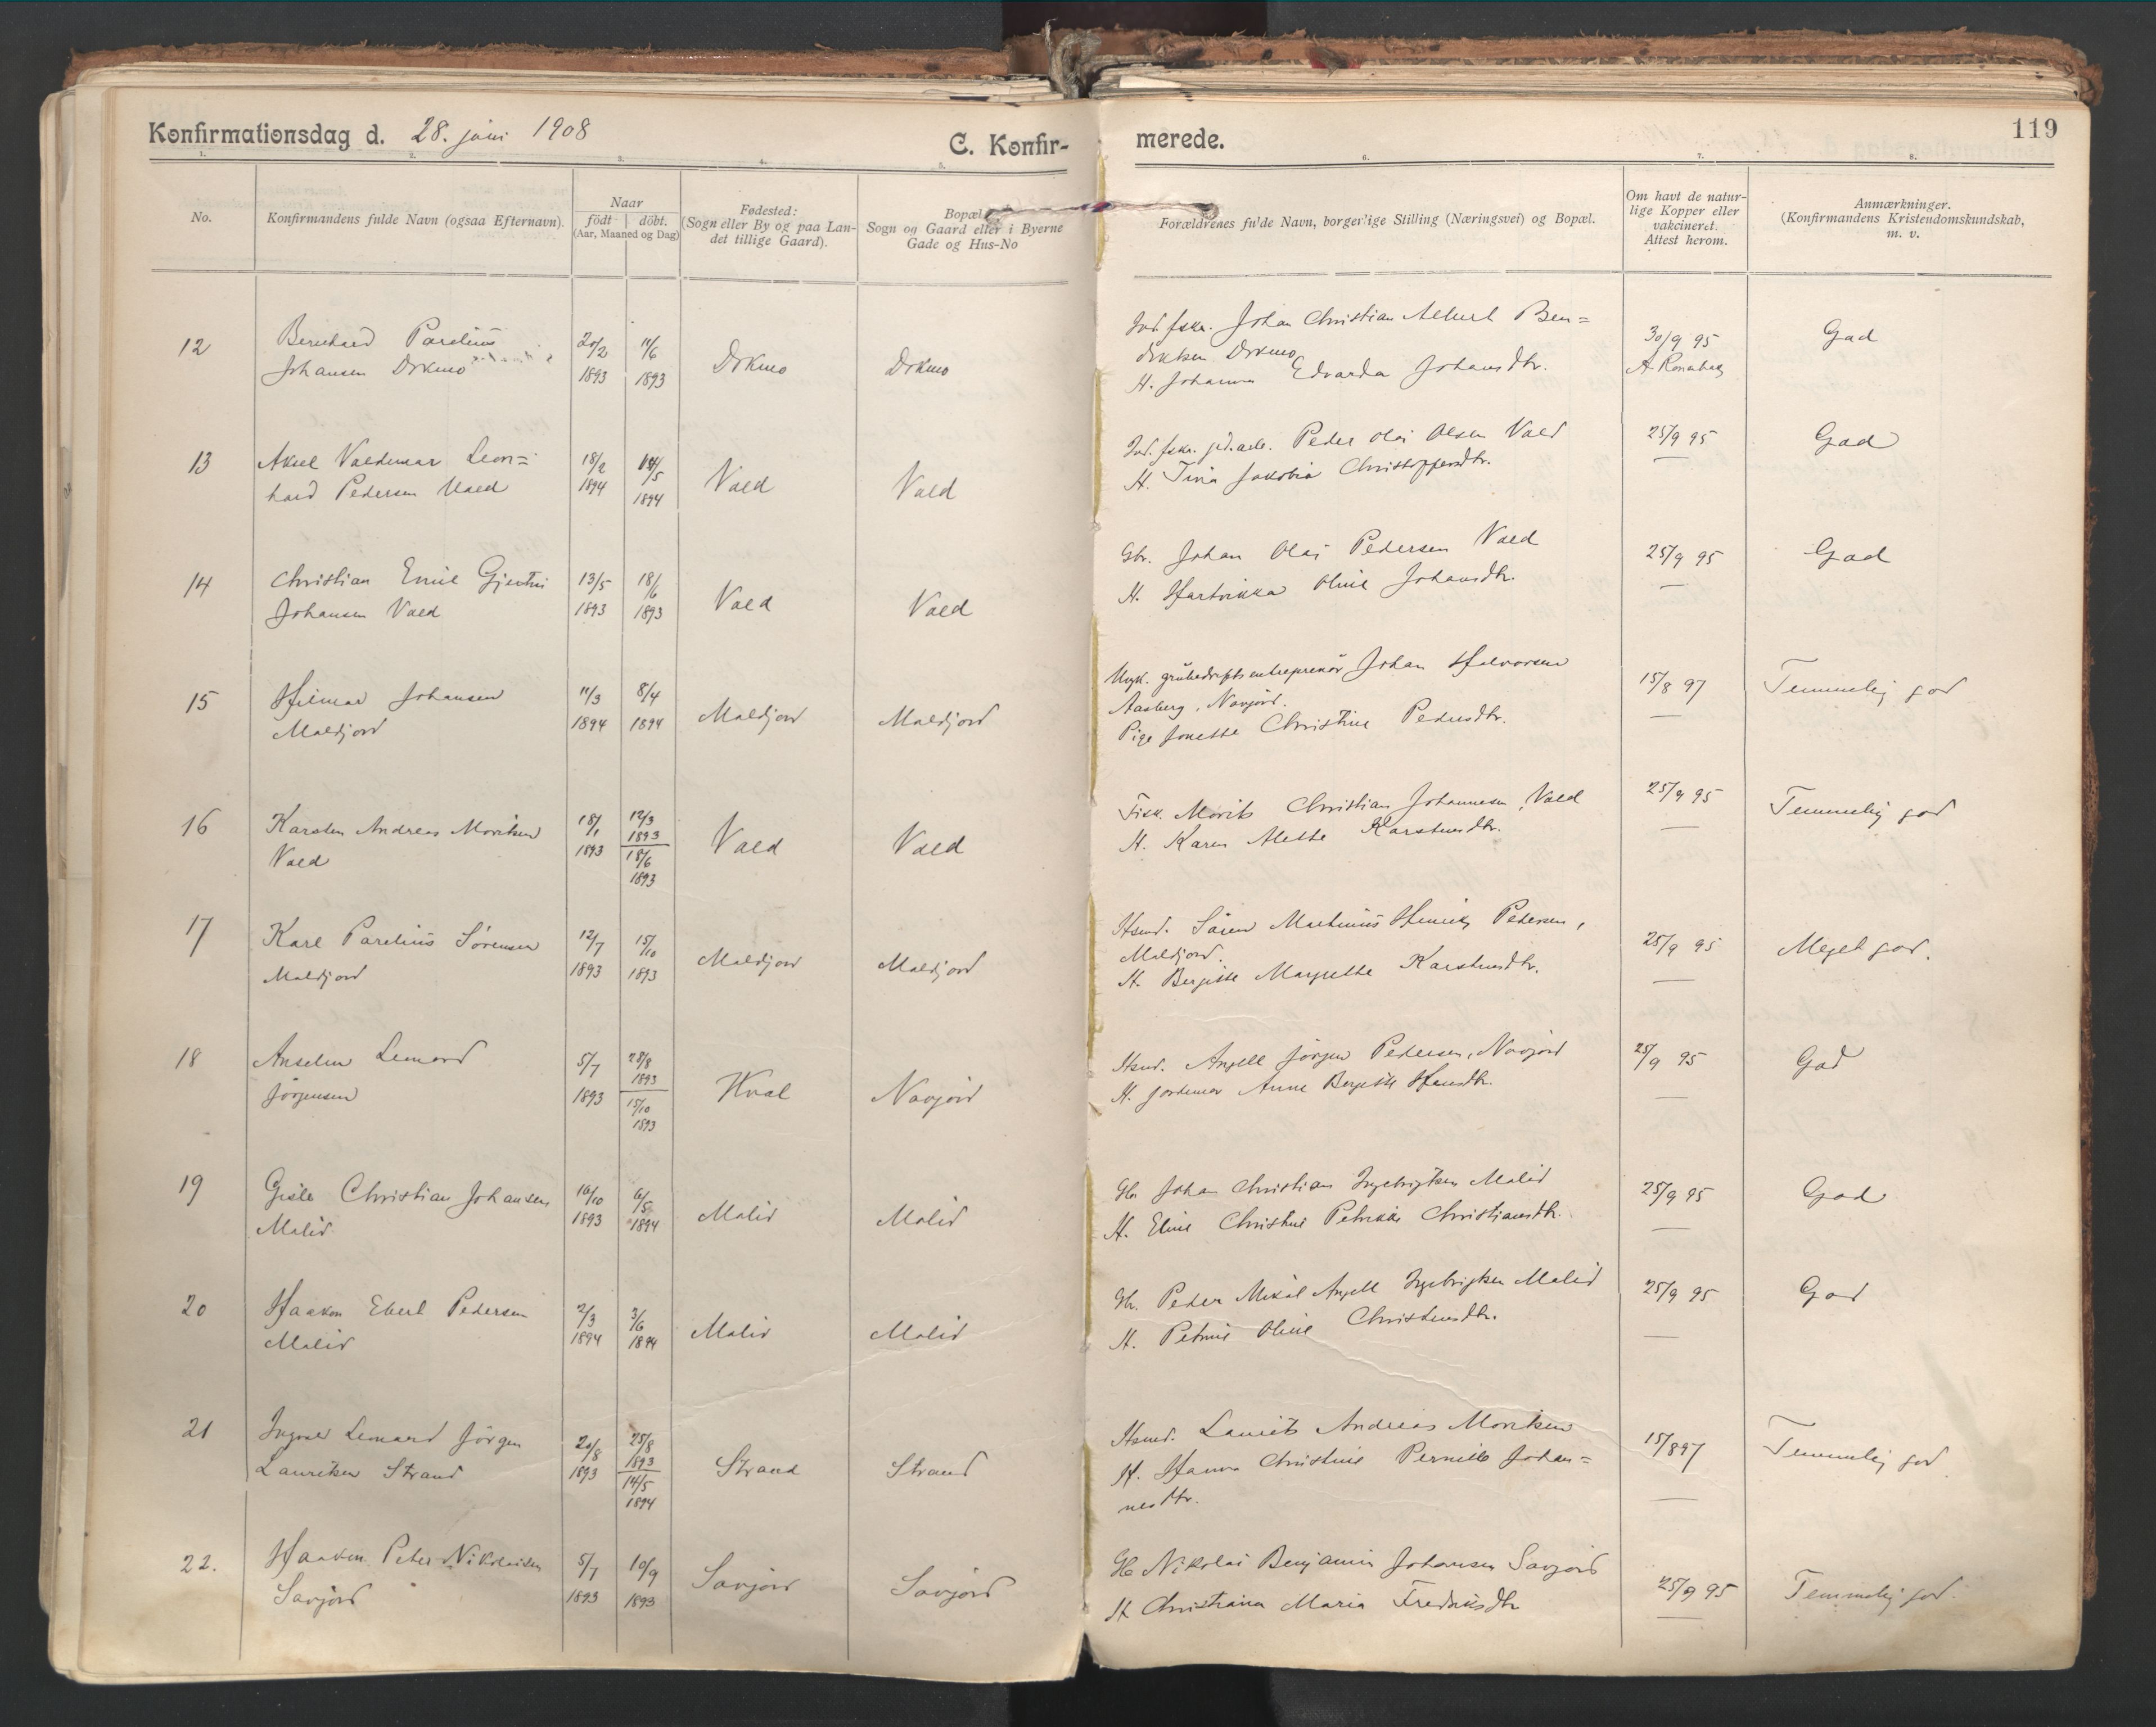 Konfirmationsdag d. 28. juni 1908
C. Konfir-
merede.
119
1. 2. 3. 4. 5. 6. 7. 8.
No.
Konfirmandens fulde Navn (ogsaa Efternavn).
Naar
født | döbt.
(Aar, Maaned og Dag)
Fødested:
(Sogn eller By og paa Lan-
det tillige Gaard).
Bopæl
Sogn og Gaard eller i Byerne
Gade og Hus-No
Forældrenes fulde Navn, borgerlige Stilling (Næringsvei) og Bopæl.
Om havt de natur-
lige Kopper eller
vakcineret.
Attest herom.
Anmærkninger.
(Konfirmandens Kristendomskundskab,
m. v.
12
Bernhard Parelius
Johansen Dokmo
20/2
1893
11/6
1893
Dokmo
Dokmo
Ind. fskr. Johan Christian Albert Ben=
Dokmo
H. Johanna Edvarda Johansdtr.
30/9 95
God
13
Aksel Valdemar Leon=
hard Pedersen Vald
18/2
1894
14/5
1894
Vald
Vald
Ind. fskr. Peder Olai Olsen Vald
H. Tina Jakobia Christoffersdtr.
25/9 95
God
14
Christian Emil Gjertin
Johansen Vald
13/5
1893
18/6
1893
Vald
Vald
Gbr. Johan Olai Pedersen Vald
H. Hartvikka Oline Johansdtr.
25/9 95
God
15
Hilmar Johansen
Maldjord
11/3
1894
8/4
1894
Maldjord
Maldjord
Ungk. grubedriftsentreprenör Johan Halvorsen
Aasberg, Navjord.
Pige Jonette Christine Pedersdtr.
15/8 97
Temmelig god
16
Karsten Andreas Moritsen
Vald
18/1
1893
12/3
1893
18/6
1893
Vald
Vald
Fisk. Morits Christian Johannesen, Vald
H. Karen Alette Karstensdtr.
25/9 95
Temmelig god
17
Karl Parelius Sörensen
Maldjord
12/7
1893
15/10
1893
Maldjord
Maldjord
Hsmd. Sören Martinus Henrik Pedersen,
Maldjord.
H. Bergitte Margrette Karstensdtr.
25/9 95
Meget god.
18
Anselm Lenard
Jörgensen
5/7
1893
28/8
1893
15/10
1893
Hval
Navjord
Hsmd. Angell Jörgen Pedersen, Navjord
H. Jordemor Anne Bergitte Hansdtr.
25/9 95
God
19
Gisle Christian Johansen
Malid
16/10
1893
6/5
1894
Malid
Malid
Gbr Johan Christian Ingebrigtsen Malid
H. Eline Christine Petrikke Christiansdtr.
25/9 95
God
20
Haakon Ebert Pedersen
Malid
2/3
1894
3/6
1894
Malid
Malid
Gbr. Peder Mikal Angell Ingebrigtsen Malid
H. Petrine Oline Christensdtr.
25/9 95
God
21
Ingvar Lenard Jörgen
Lauritsen Strand
20/8
1893
25/8
1893
14/5
1894
Strand
Strand
Hsmd. Laurits Andreas Moritsen
H. Hanna Christine Pernille Johan=
nesdtr.
15/8 97
Temmelig god
22.
Haakon Peter Nikolaisen
Savjord
5/7
1893
10/9
1893
Savjord
Savjord
Gb Nikolai Benjamin Johansen Savjord
H Christiana Maria Fredriksdtr
25/9 95
Temmelig god.